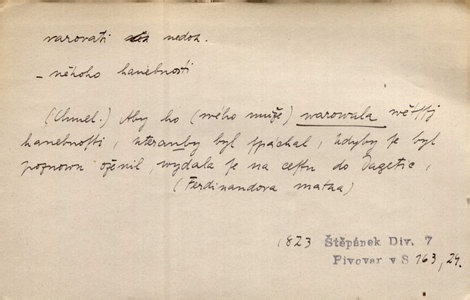 varovati nedok.
- někoho hanebnosti
(Chmel.) Aby ho (svého muže) warowala wětssj
hanebnosti, kterauby byl spáchal, kdyby se byl
poznowu oženil, wydala se na cestu do Jagetic,
(Ferdinandova matka)
1823 Štěpánek Div. 7
Pivovar v S 163, 24.